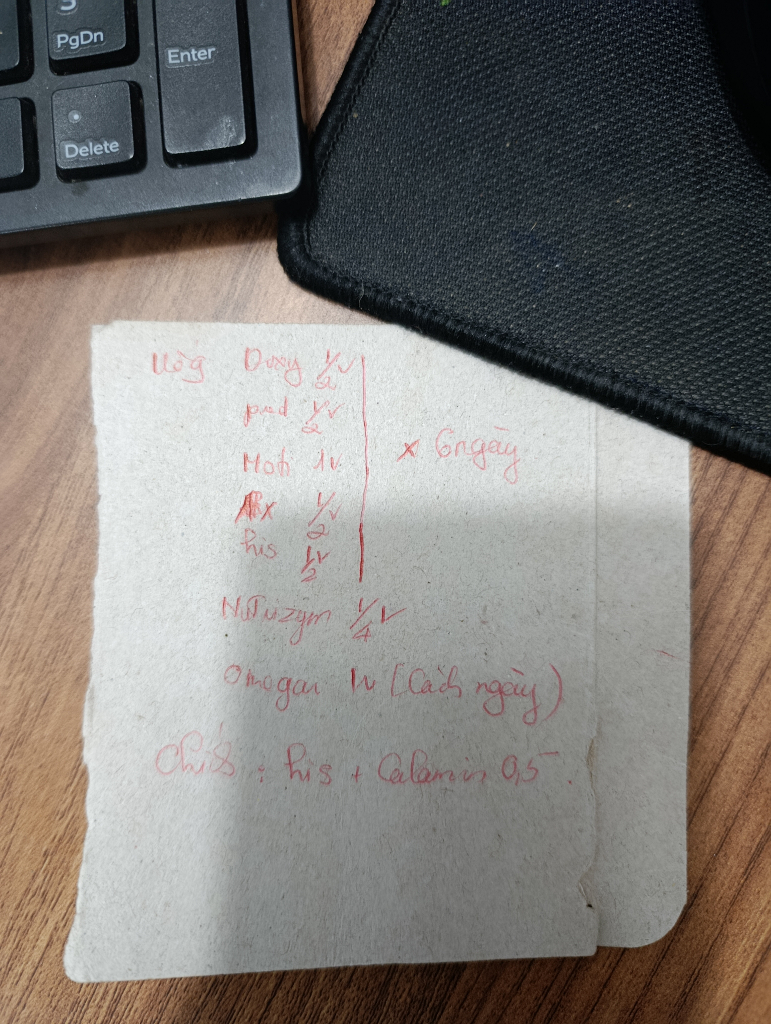 PgDn
Enter
Delete
Uống Doxy 1/2 v
pred 1/2 v
Moti 1v
1/2 v
his 1/2 v
x 6 ngày
Nutrizym 1/4 v
Omega 1v (Cách ngày)
Chích : his + Calamin 0,5